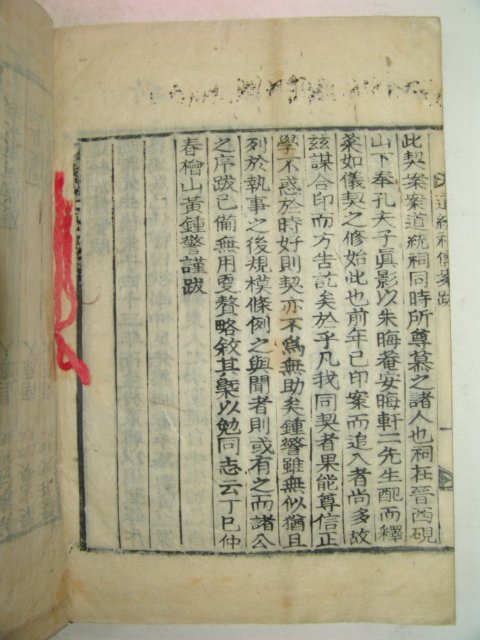 道統祠儒契跋
此契案案道統祠同時所尊慕之諸人也祠在晉西硯
山下奉孔夫子眞影以朱晦菴安晦軒二先生配而釋
菜如儀契之修始此也前年已印案而追入者尚多故
玆謀合印而方告訖矣於乎凡我同契者果能尊信正
學不惑於時好則契亦不爲無助矣鍾瑩雖無似猶且
列於執事之後規模條例之與聞者則或有之而諸公
之序跋已備無用更贅略敘其槩以勉同志云丁巳仲
春檜山黃鍾瑩謹跋